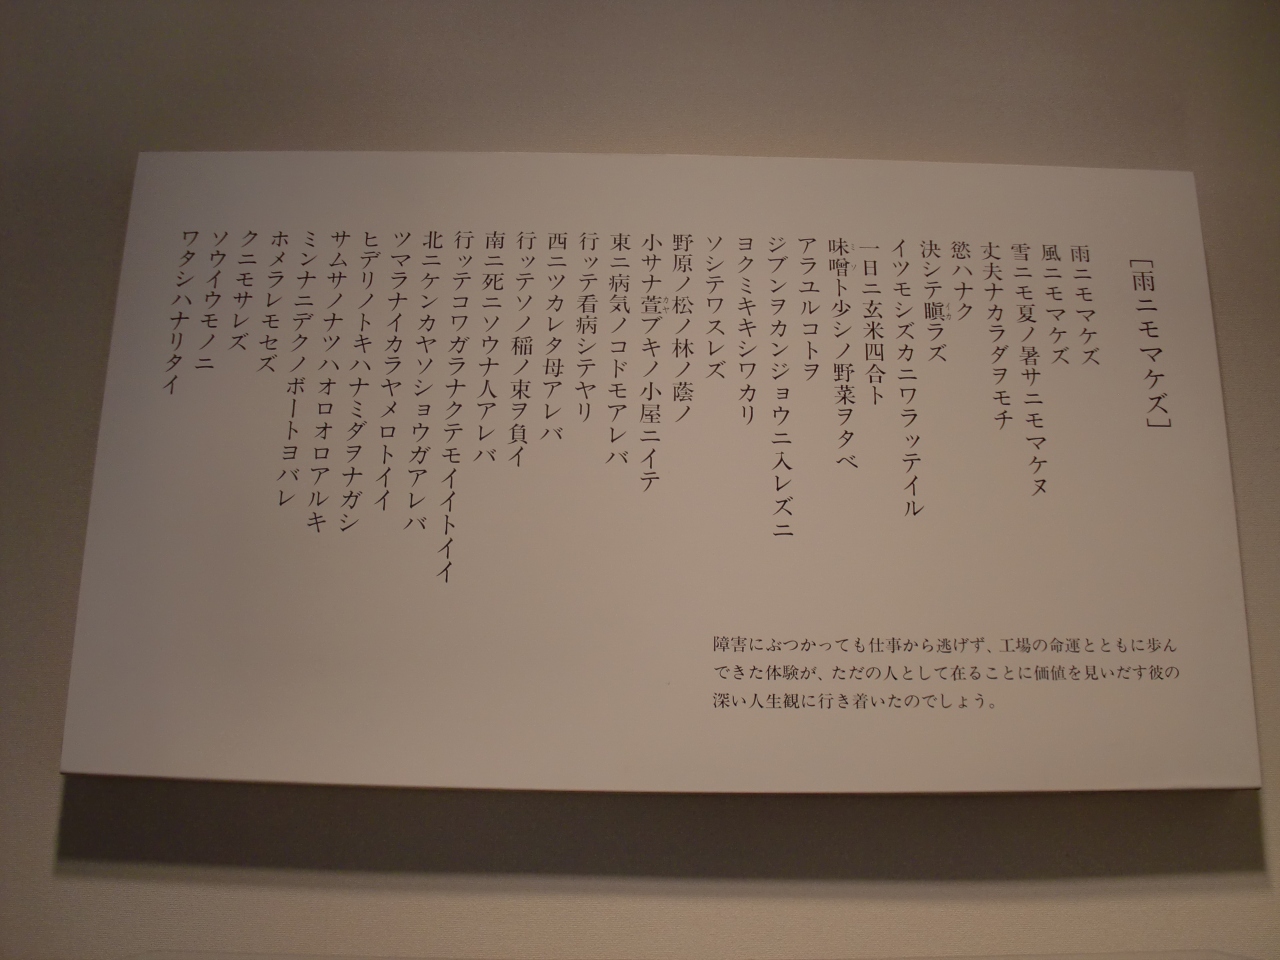 ［雨ニモマケズ］
雨ニモマケズ
風ニモマケズ
雪ニモ夏ノ暑サニモマケヌ
丈夫ナカラダヲモチ
慾ハナク
決シテ瞋ラズ
イツモシズカニワラッテイル
一日ニ玄米四合ト
味噌ト少シノ野菜ヲタベ
アラユルコトヲ
ジブンヲカンジョウニ入レズニ
ヨクミキキシワカリ
ソシテワスレズ
野原ノ松ノ林ノ蔭ノ
小サナ萱ブキノ小屋ニイテ
東ニ病気ノコドモアレバ
行ッテ看病シテヤリ
西ニツカレタ母アレバ
行ッテソノ稲ノ束ヲ負イ
南ニ死ニソウナ人アレバ
行ッテコワガラナクテモイイトイイ
北ニケンカヤソショウガアレバ
ツマラナイカラヤメロトイイ
ヒデリノトキハナミダヲナガシ
サムサノナツハオロオロアルキ
ミンナニデクノボートヨバレ
ホメラレモセズ
クニモサレズ
ソウイウモノニ
ワタシハナリタイ
障害にぶつかっても仕事から逃げず、工場の命運とともに歩ん
できた体験が、ただの人として在ることに価値を見いだす彼の
深い人生観に行き着いたのでしょう。